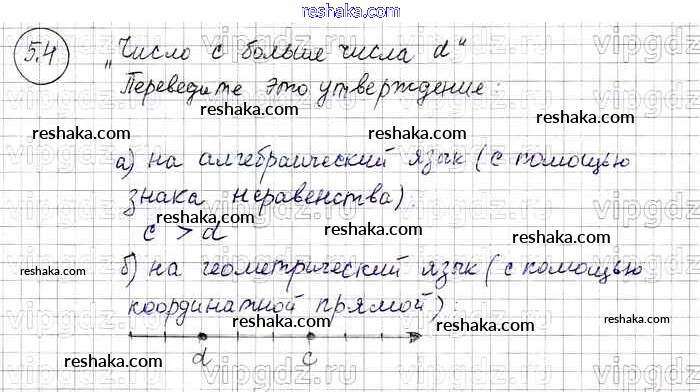 reshaka.com
5.4
„Число с больше числа d“
Переведите это утверждение:
reshaka.com reshaka.com
reshaka.com reshaka.com
а) на алгебраический язык (с помощью
знака неравенства).
reshaka.com reshaka.com
c > d
reshaka.com reshaka.com
б) на геометрический язык (с помощью
координатной прямой):
reshaka.com
d c
reshaka.com reshaka.com